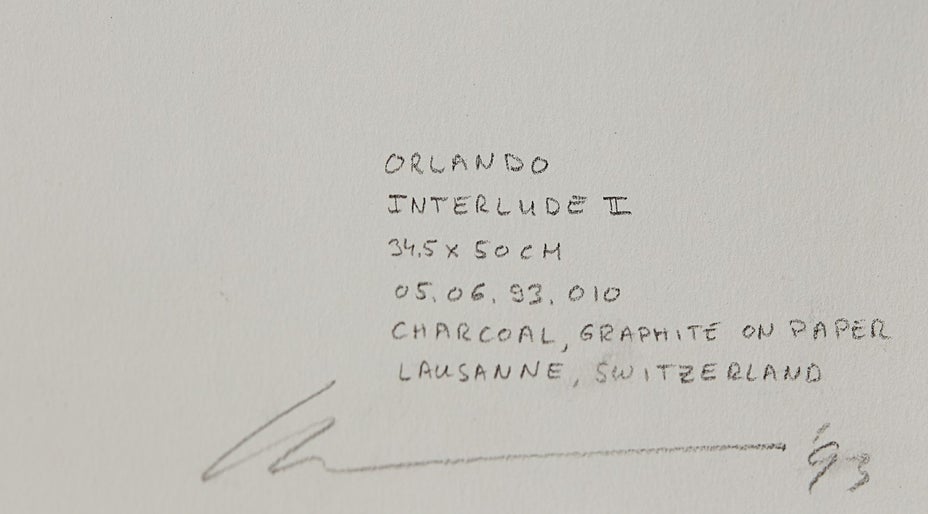 ORLANDO
INTERLUDE II
34.5 x 50 CM
05.06.93.010
CHARCOAL, GRAPHITE ON PAPER
LAUSANNE, SWITZERLAND
'93